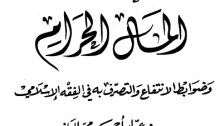 المال الحرام
وضوابط الانتفاع والتصرف به في الفقه الإسلامي